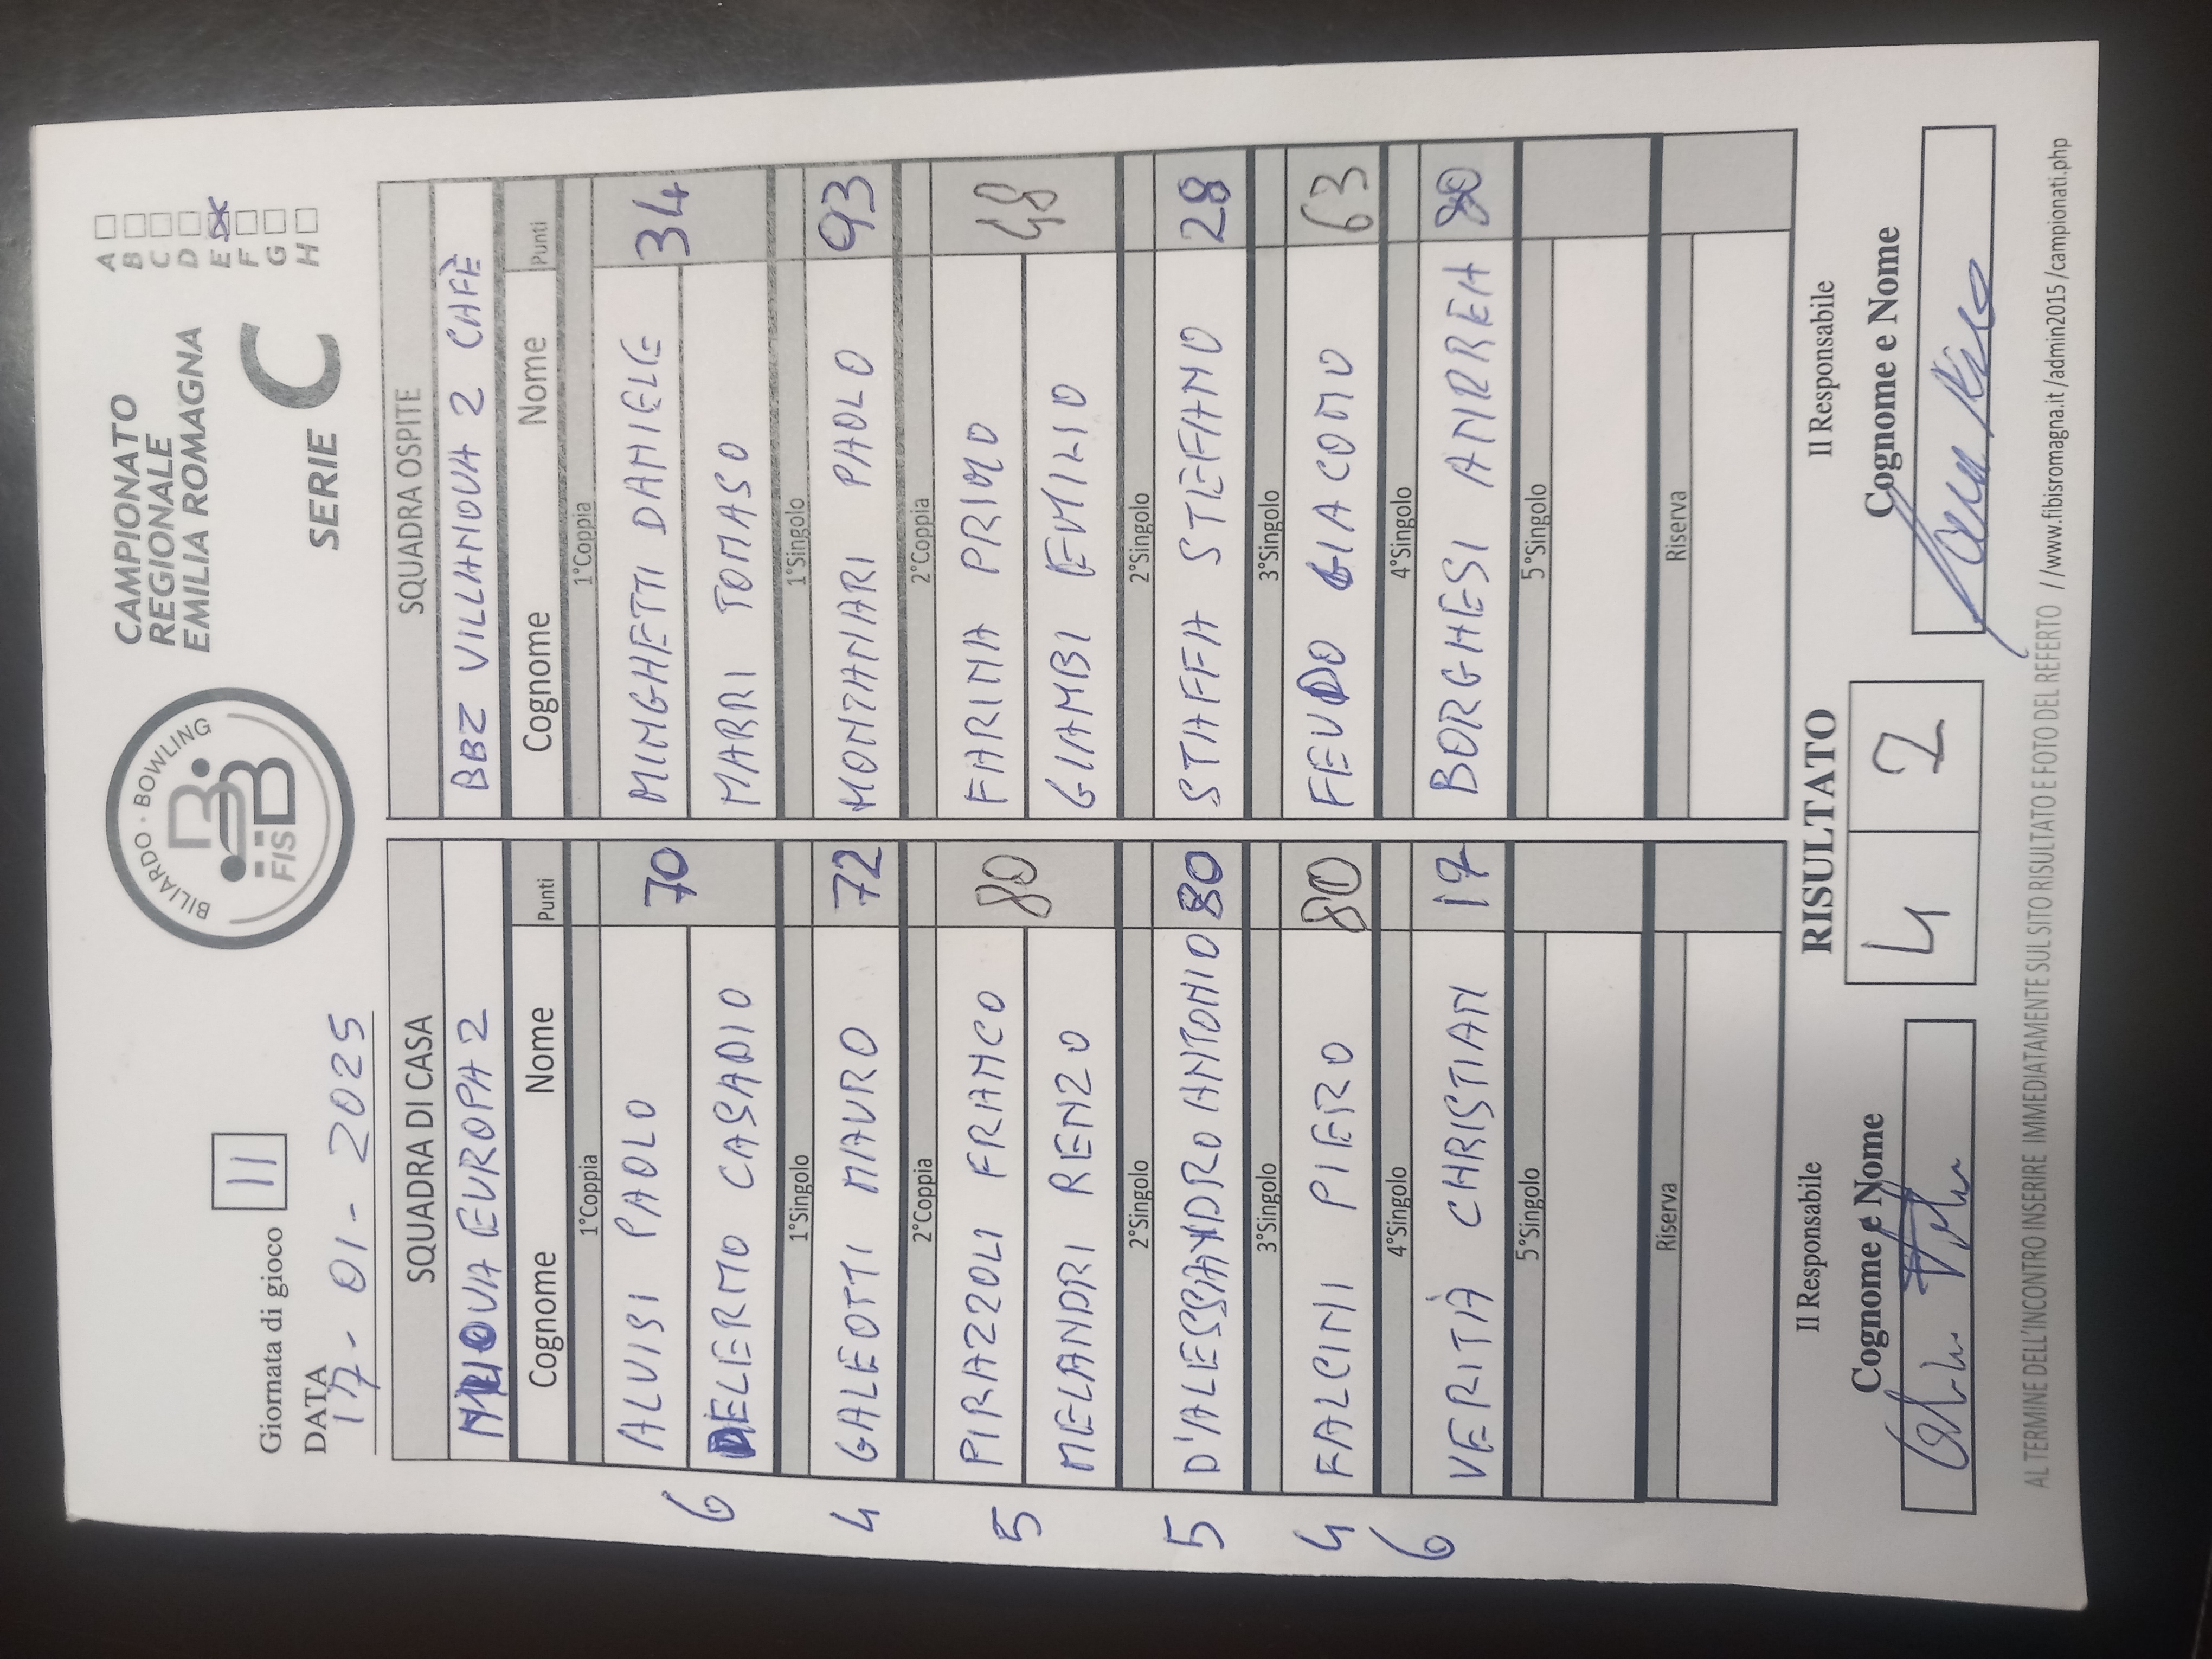 Giornata di gioco 11
DATA
17-01-2025
BILIARDO · BOWLING
FISBB
CAMPIONATO
REGIONALE
EMILIA ROMAGNA
SERIE C
A
B
C
D
E X
F
G
H
SQUADRA DI CASA
NUOVA EUROPA 2
Cognome Nome Punti
1°Coppia
6 ALVISI PAOLO 70
DELERMO CASADIO
1°Singolo
4 GALEOTTI MAURO 72
2°Coppia
5 PIRAZZOLI FRANCO 80
MELANDRI RENZO
2°Singolo
5 D'ALESSANDRO ANTONIO 80
3°Singolo
4 FALCINI PIERO 80
4°Singolo
6 VERITÀ CHRISTIAN 17
5°Singolo
Riserva
SQUADRA OSPITE
BBZ VILLANOVA 2 CAFÈ
Cognome Nome Punti
1°Coppia
MINGHETTI DANIELE 34
MARRI TOMASO
1°Singolo
MONTANARI PAOLO 93
2°Coppia
FARINA PRIMO 48
GIAMBI EMILIO
2°Singolo
STAFFA STEFANO 28
3°Singolo
FEUDO GIACOMO 63
4°Singolo
BORGHESI ANDREA 80
5°Singolo
Riserva
Il Responsabile
Cognome e Nome
RISULTATO
4 2
Il Responsabile
Cognome e Nome
AL TERMINE DELL'INCONTRO INSERIRE IMMEDIATAMENTE SUL SITO RISULTATO E FOTO DEL REFERTO //www.fibisromagna.it/admin2015/campionati.php